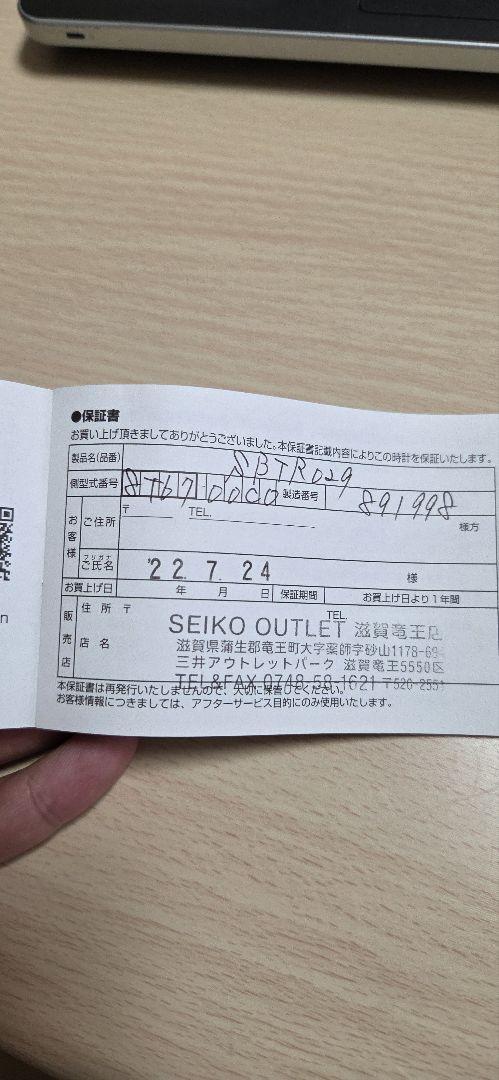 ●保証書
お買い上げ頂きましてありがとうございました。本保証書記載内容によりこの時計を保証いたします。
製品名(品番) SBTR029
側型式番号 8T67 00C0 製造番号 891998
お客様 ご住所 〒 TEL. 様方
フリガナ
ご氏名 様
'22. 7. 24
お買上げ日 年 月 日 保証期間 お買上げ日より1年間
販売店 住所 〒 TEL
店名
SEIKO OUTLET 滋賀竜王店
滋賀県蒲生郡竜王町大字薬師字砂山1178-694
三井アウトレットパーク 滋賀竜王5550区
TEL&FAX 0748-58-1621 〒520-2551
本保証書は再発行いたしませんので、大切に保管してください。
お客様情報につきましては、アフターサービス目的にのみ使用いたします。
n